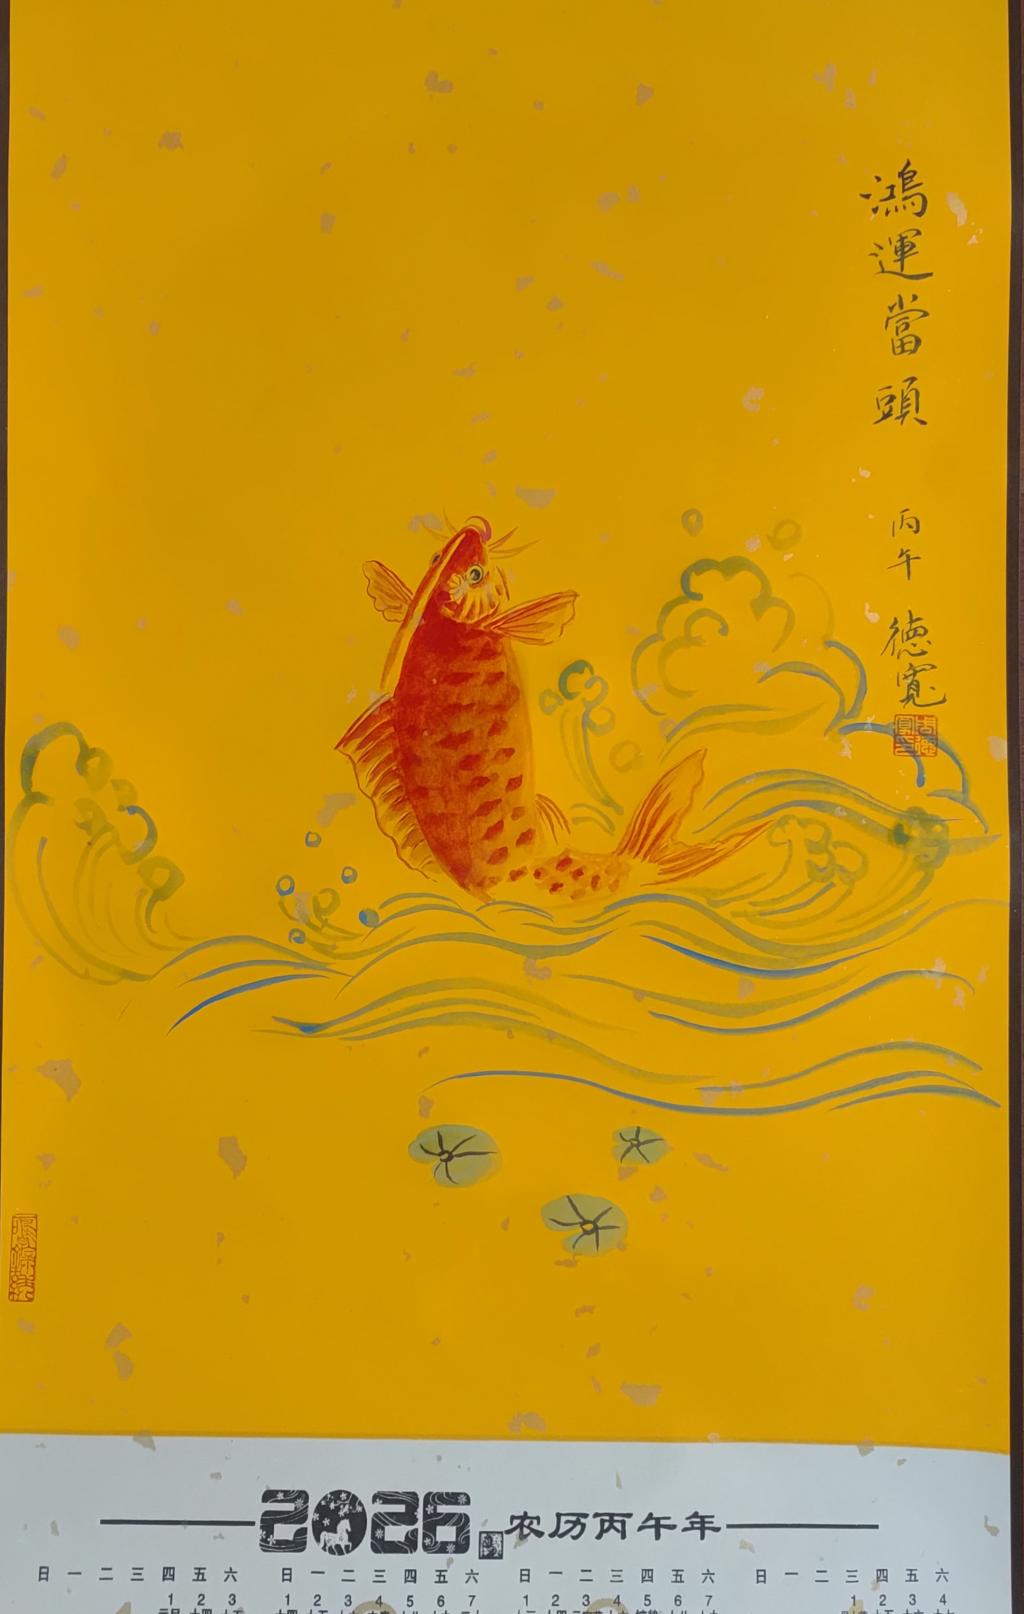 鴻運當頭
丙午
德寬
2026 农历丙午年
日 一 二 三 四 五 六
1 2 3
日 一 二 三 四 五 六
1 2 3 4 5 6 7
日 一 二 三 四 五 六
1 2 3 4 5 6 7
日 一 二 三 四 五 六
1 2 3 4